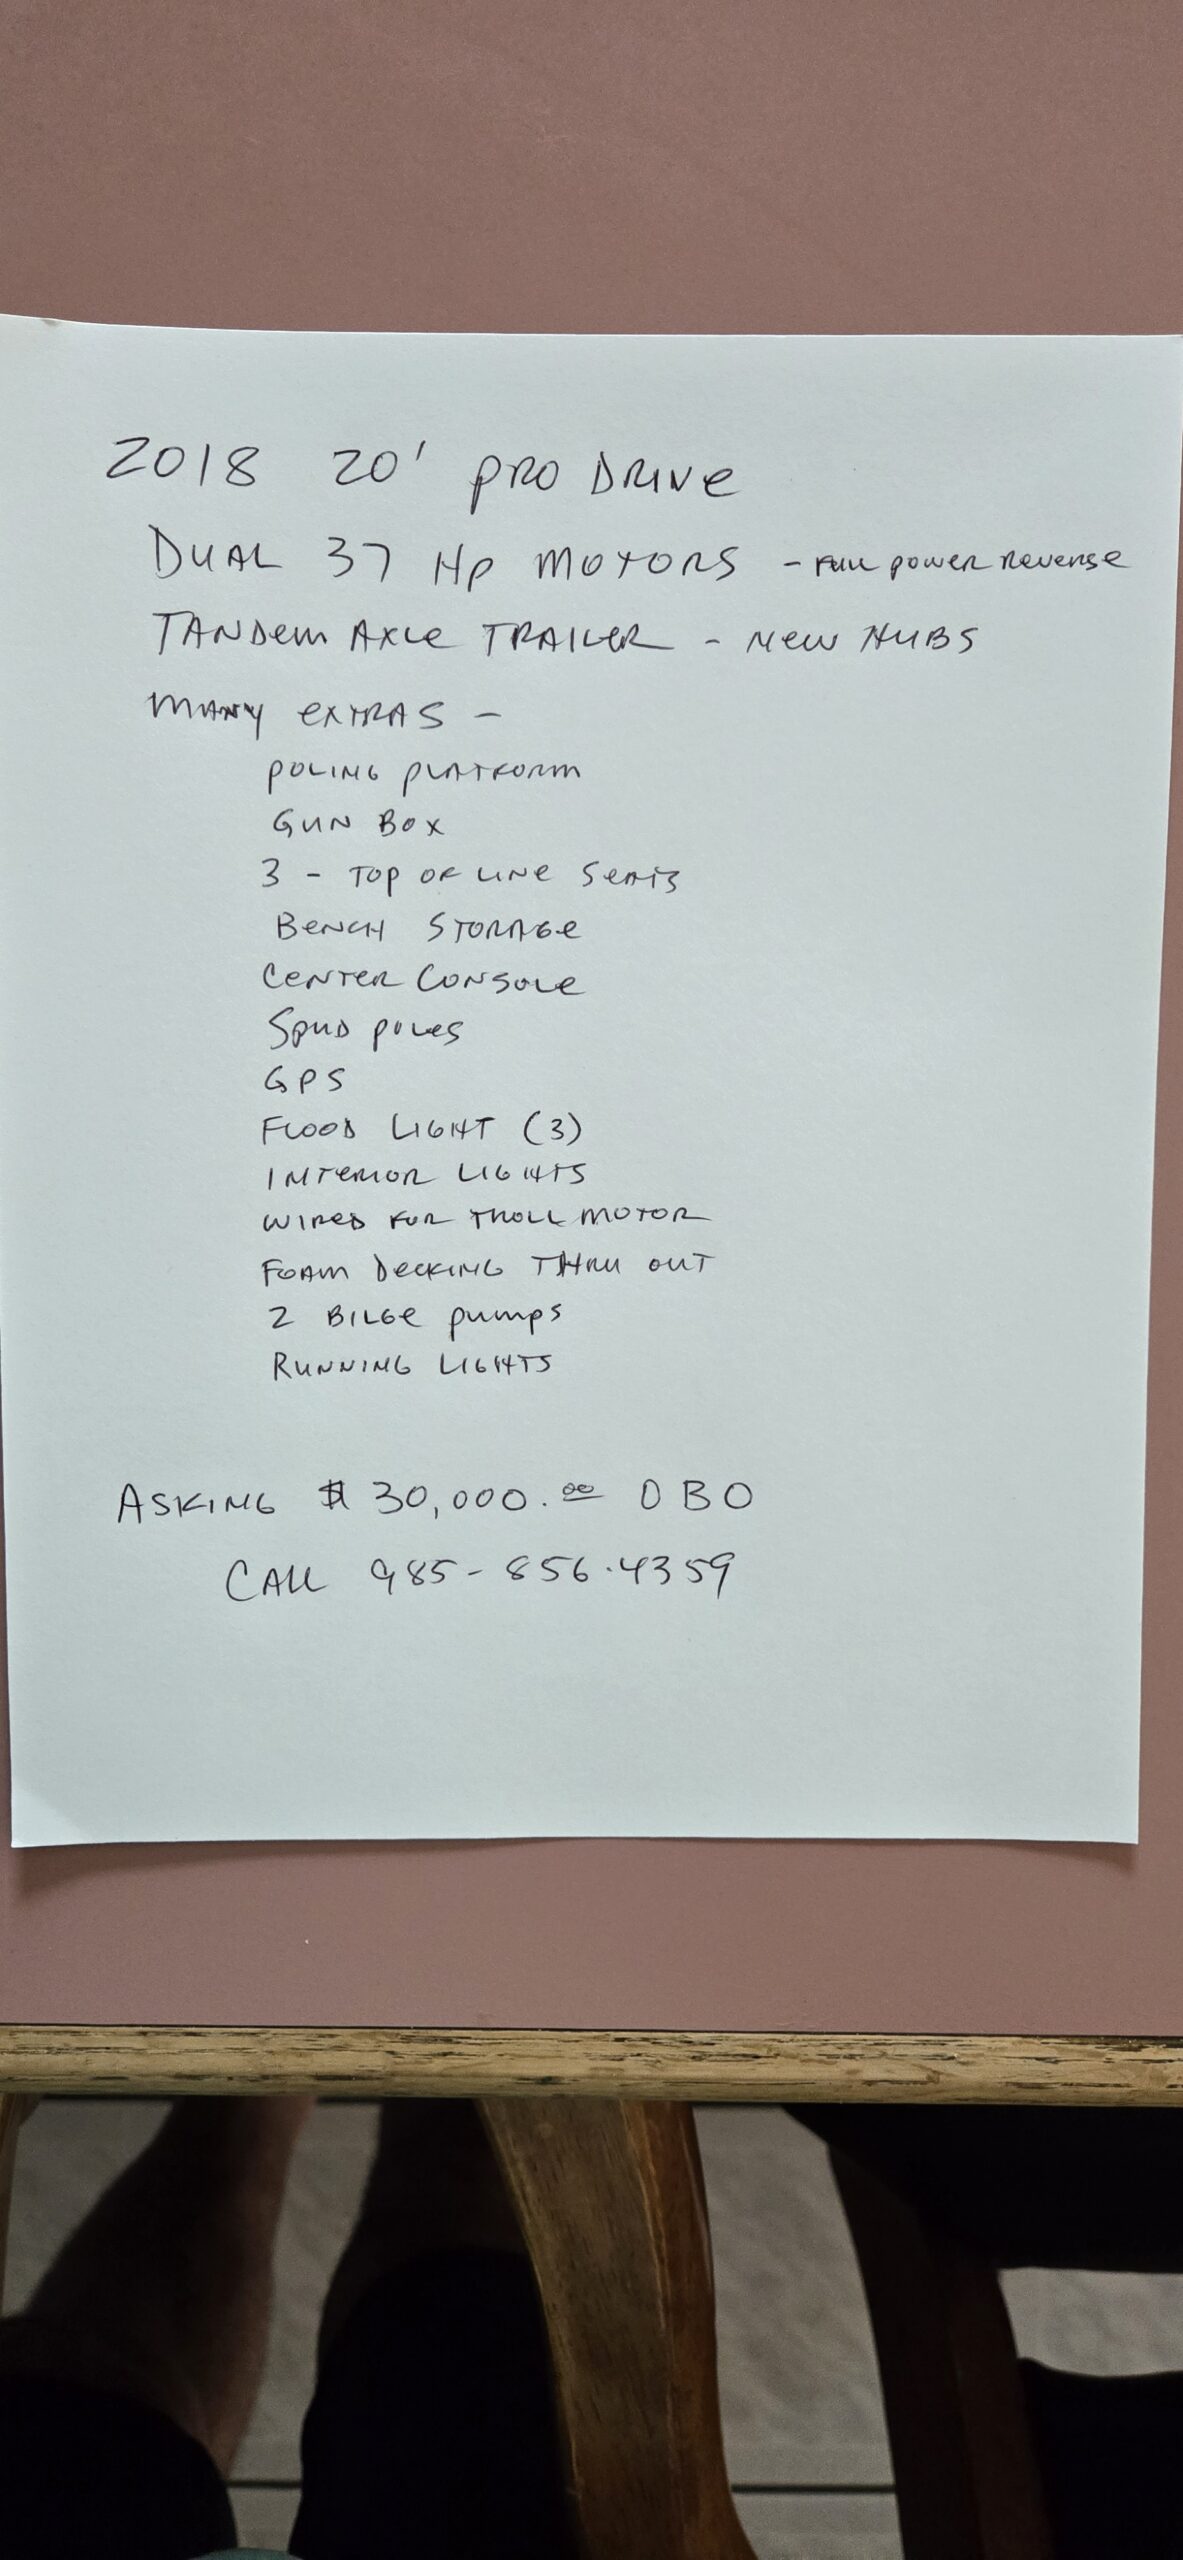 2018 20' PRO DRIVE
DUAL 37 HP MOTORS - FULL POWER REVERSE
TANDEM AXLE TRAILER - NEW HUBS
MANY EXTRAS -
POLING PLATFORM
GUN BOX
3 - TOP OF LINE SEATS
BENCH STORAGE
CENTER CONSOLE
SPUD POLES
GPS
FLOOD LIGHT (3)
INTERIOR LIGHTS
WIRED FOR TROLL MOTOR
FOAM DECKING THRU OUT
2 BILGE PUMPS
RUNNING LIGHTS
ASKING $30,000.00 OBO
CALL 985-856.4359